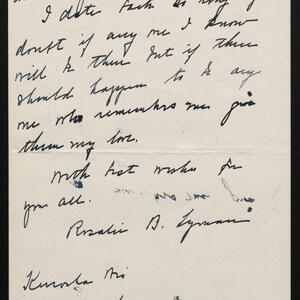 I date back so long I
doubt if any one I know
will be there but if there
should happen to be any
one who remembers me give
them my love.
With best wishes for
you all.
Rosalie B. Lyman
Kenosha Wis